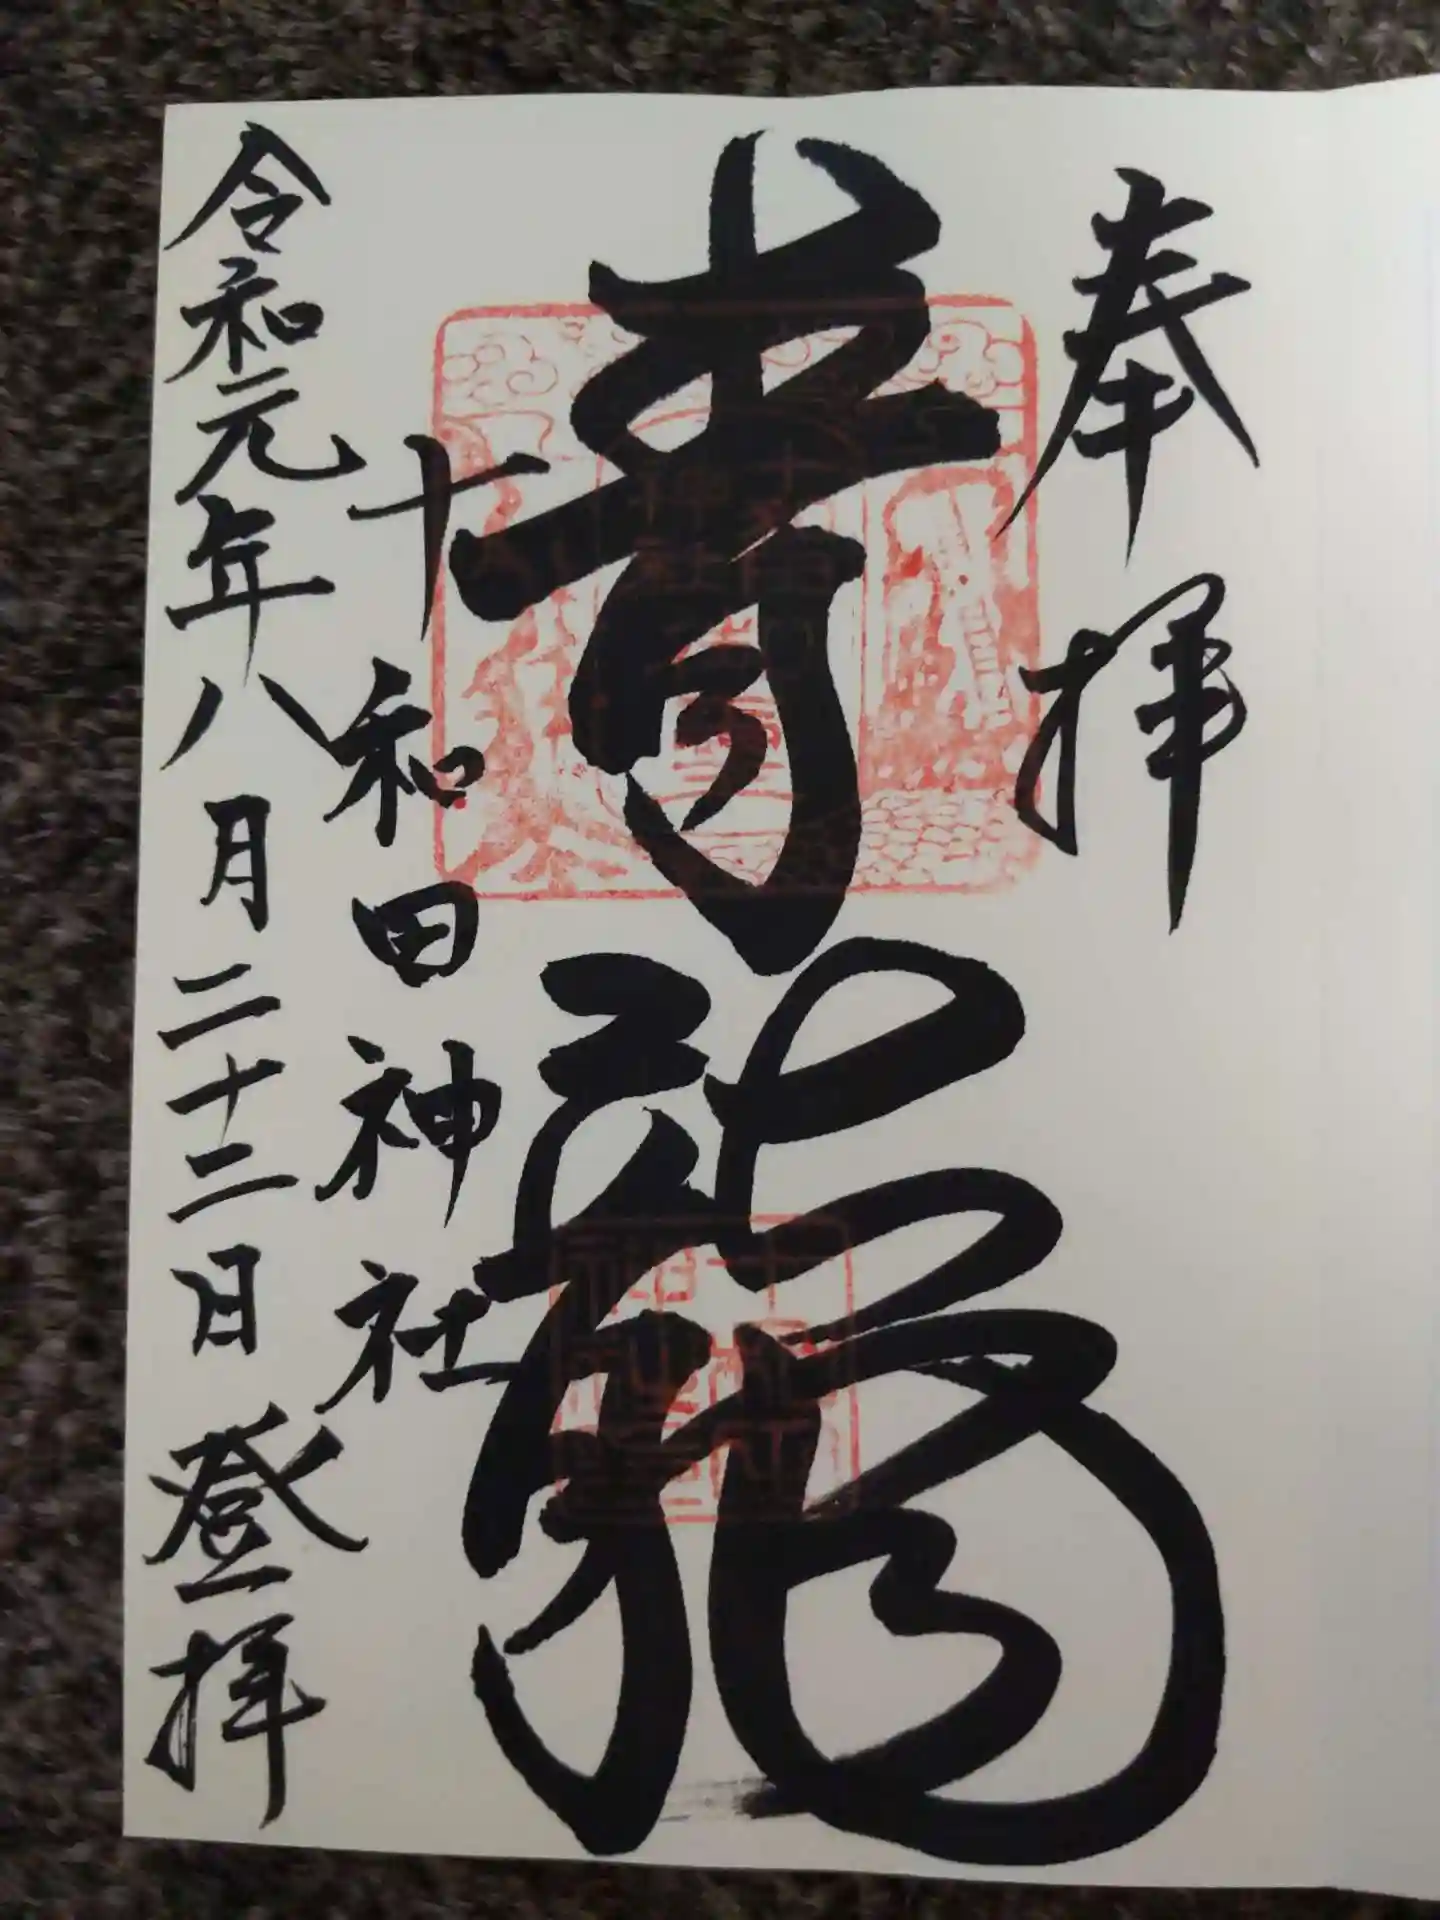 奉拝
青龍
十和田神社
令和元年八月二十二日登拝